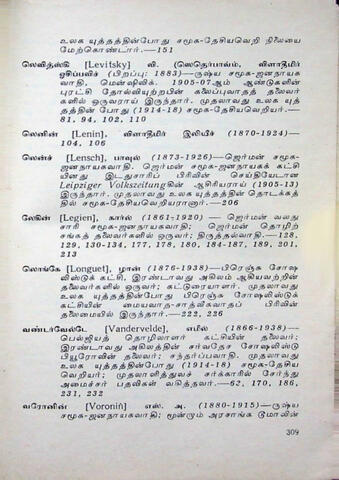 உலக யுத்தத்தின்போது சமூக-தேசியவெறி நிலையை
மேற்கொண்டார்.—151
லெவித்ஸ்கி [Levitsky] வி. (ஸெதெர்பாவும், விளாதீமிர்
ஒசிப்பவிச் (பிறப்பு: 1883)—ருஷ்ய சமூக-ஜனநாயக
வாதி. மென்ஷிவிக். 1905-07ஆம் ஆண்டுகளின்
புரட்சி தோல்வியுற்றபின் கலைப்புவாதத் தலைவர்
களில் ஒருவராய் இருந்தார். முதலாவது உலக யுத்
தத்தின் போது (1914-18) சமூக-தேசியவெறியர்.—
81, 94, 102, 110
லெனின் [Lenin], விளாதீமிர் இலியீச் (1870-1924)—
104, 106
லென்ச் [Lensch], பாவுல் (1873-1926)—ஜெர்மன் சமூக-
ஜனநாயகவாதி. ஜெர்மன் சமூக-ஜனநாயகக் கட்சி
யினது இடதுசாரிப் பிரிவின் செய்தியேடான
Leipziger Volkszeitungகின் ஆசிரியராய் (1905-13)
இருந்தார். முதலாவது உலக யுத்தத்தின் தொடக்கத்
தில் சமூக-தேசியவெறியரானார்.—206
லேகின் [Legien], கார்ல் (1861-1920) — ஜெர்மன் வலது
சாரி சமூக-ஜனநாயகவாதி; ஜெர்மன் தொழிற்
சங்கத் தலைவர்களில் ஒருவர்; திருத்தல்வாதி.—128,
129, 130-134, 177, 178, 180, 184-187, 189, 201,
213
லொங்கே [Longuet], ழான் (1876-1938)—பிரெஞ்சு சோஷ
லிஸ்டுக் கட்சி, இரண்டாவது அகிலம் ஆகியவற்றின்
தலைவர்களில் ஒருவர்; கட்டுரையாளர். முதலாவது
உலக யுத்தத்தின்போது பிரெஞ்சு சோஷலிஸ்டுக்
கட்சியின் மையவாத-சாத்வீகவாதப் பிரிவின்
தலைமையில் இருந்தார்.—222, 226
வண்டர்வேல்டே [Vandervelde], எமில் (1866-1938)—
பெல்ஜியத் தொழிலாளர் கட்சியின் தலைவர்;
இரண்டாவது அகிலத்தின் சர்வதேச சோஷலிஸ்டு
பியூரோவின் தலைவர்; சந்தர்ப்பவாதி. முதலாவது
உலக யுத்தத்தின்போது (1914-18) சமூக-தேசிய
வெறியர்; முதலாளித்துவச் சர்க்காரில் சேர்ந்து
அமைச்சர் பதவிகள் வகித்தவர்.—62, 170, 186,
231, 232
வரோனின் [Voronin] எஸ். அ. (1880-1915)—ருஷ்ய
சமூக-ஜனநாயகவாதி; மூன்றாம் அரசாங்க டூமாவின்
309